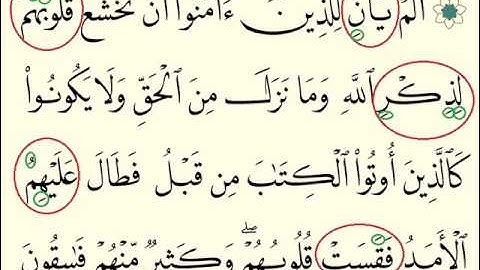 أَلَمْ يَأْنِ لِلَّذِينَ ءَامَنُوا أَن تَخْشَعَ قُلُوبُهُمْ
لِذِكْرِ ٱللَّهِ وَمَا نَزَلَ مِنَ ٱلْحَقِّ وَلَا يَكُونُوا۟
كَٱلَّذِينَ أُوتُوا۟ ٱلْكِتَٰبَ مِن قَبْلُ فَطَالَ عَلَيْهِمُ
ٱلْأَمَدُ فَقَسَتْ قُلُوبُهُمْ ۖ وَكَثِيرٌ مِّنْهُمْ فَٰسِقُونَ